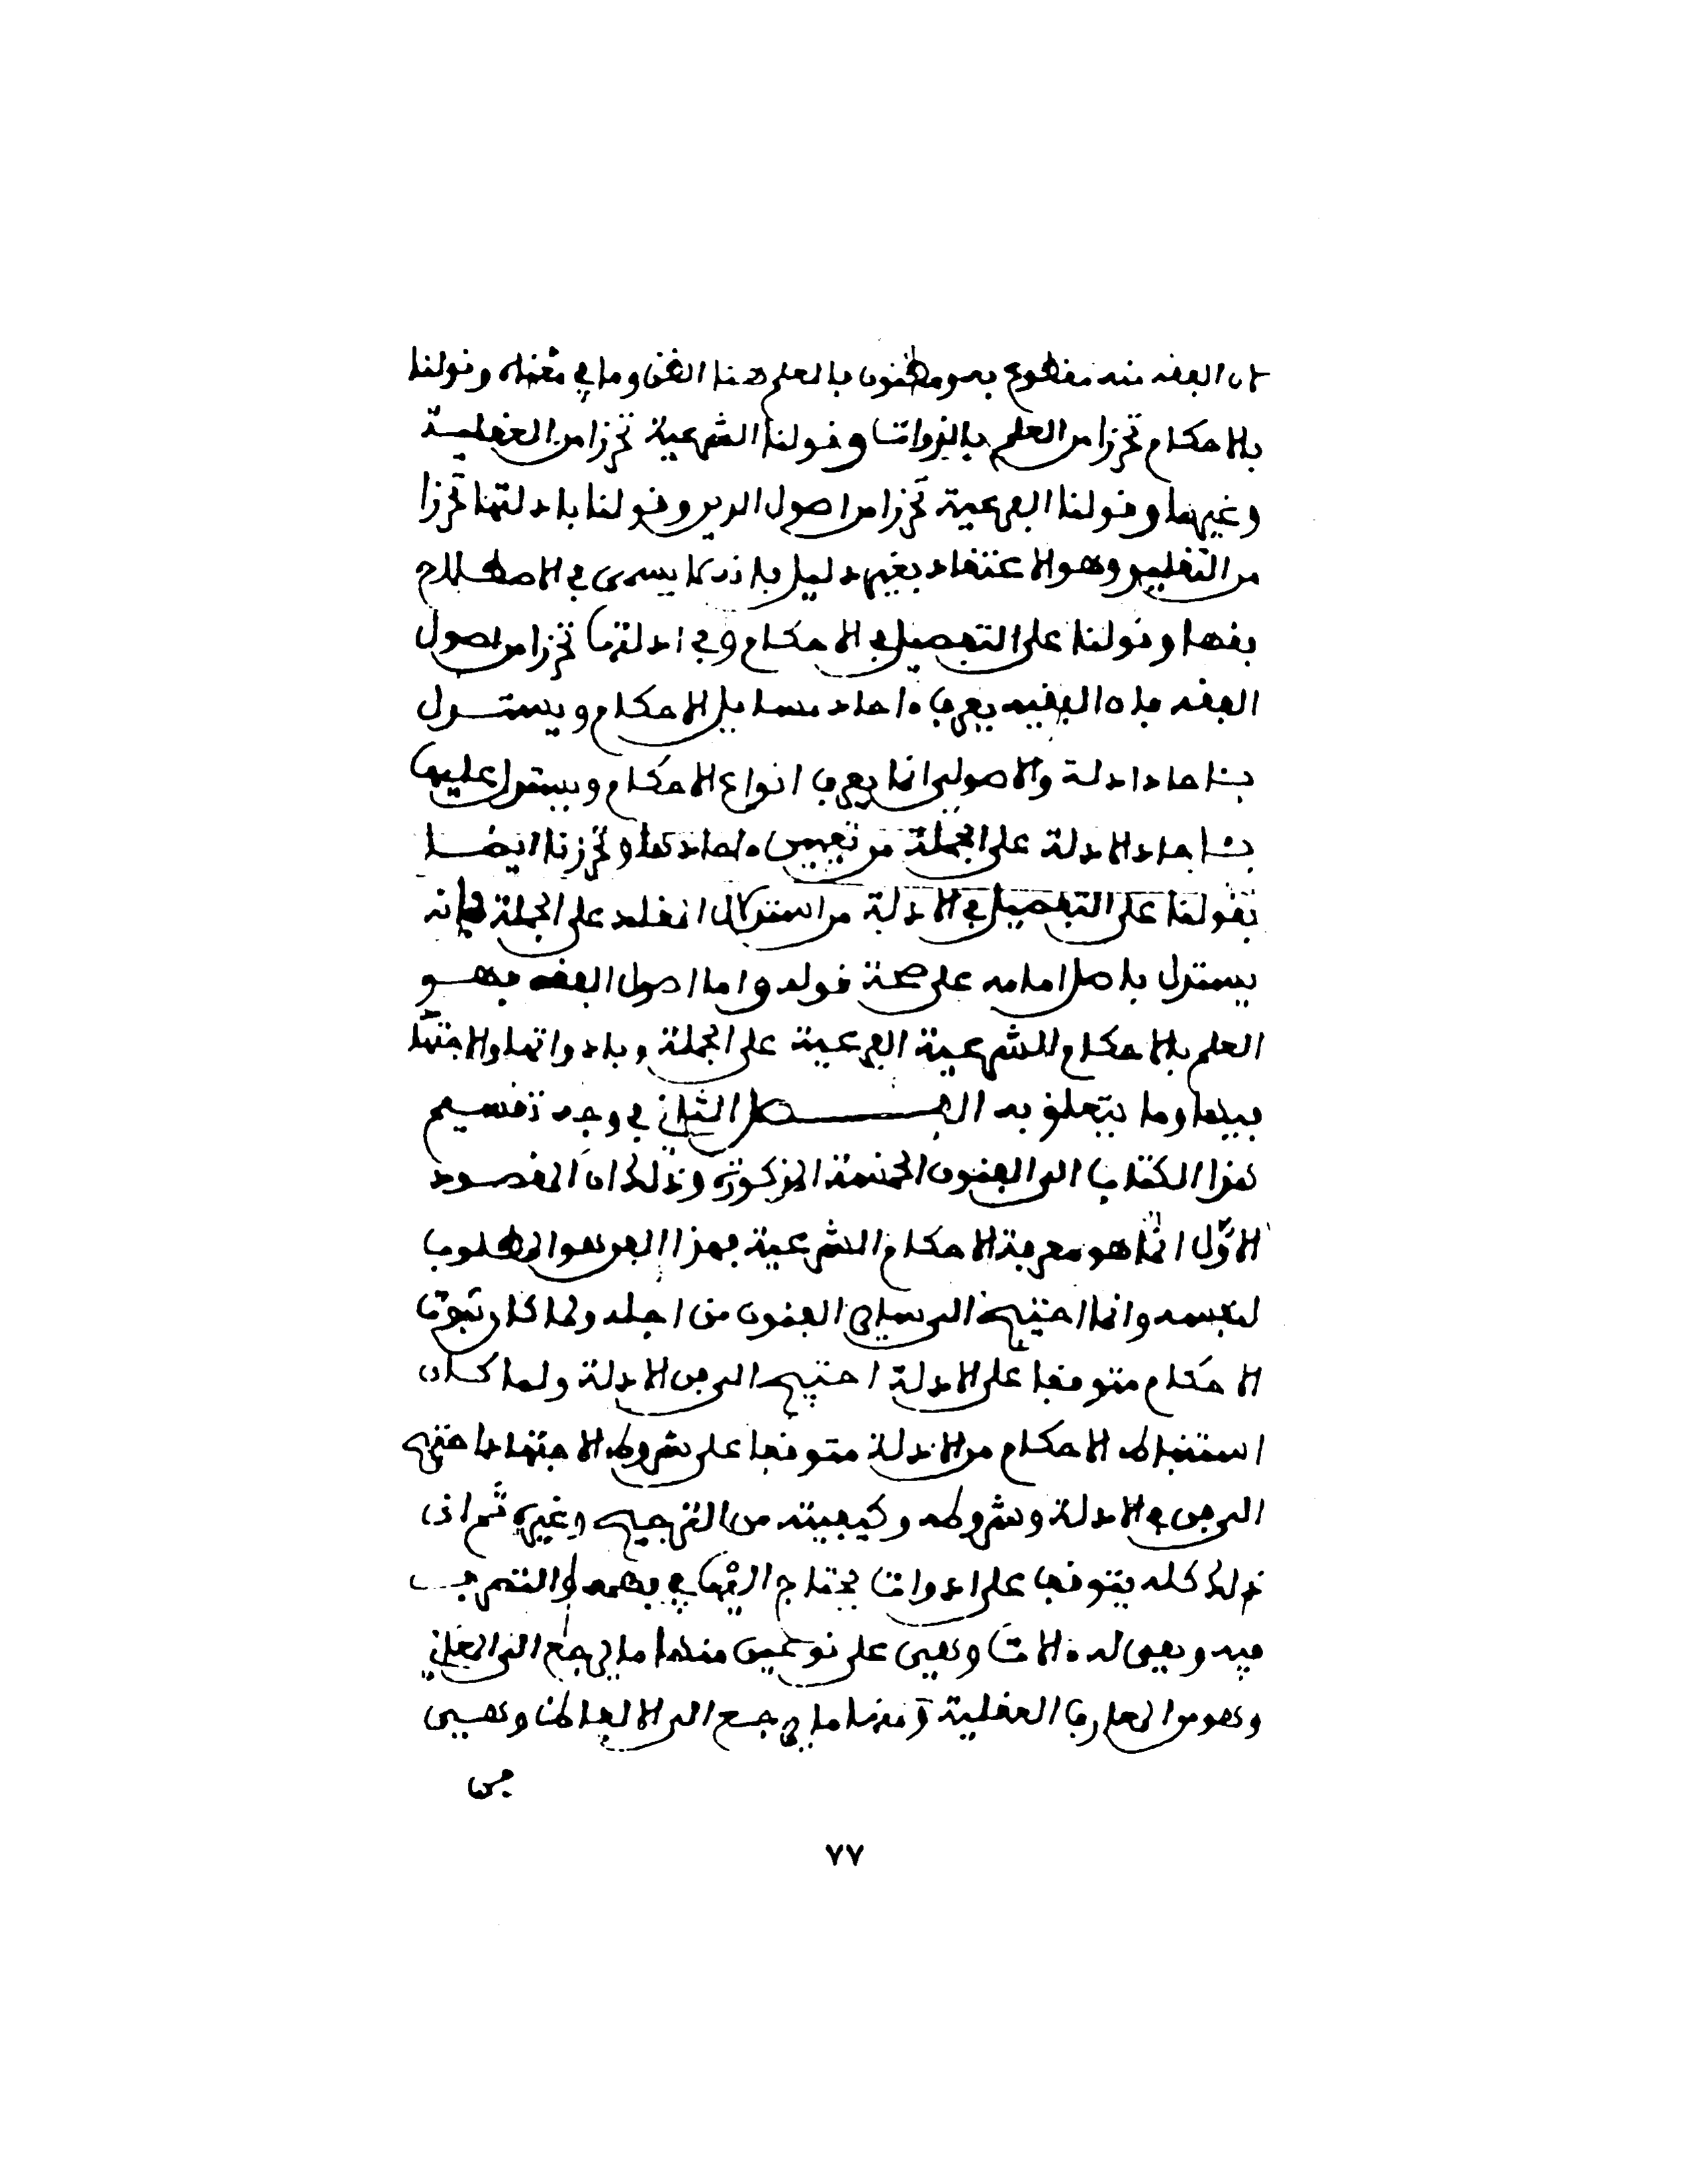 لان الفقه منه مقطوع به ومظنون بالعلم هنا الظن وما في معناه وقولنا
بالاحكام تحرزا من العلم بالذوات وقولنا الشرعية تحرزا من العقلية
وغيرها وقولنا الفرعية تحرزا من اصول الدين وقولنا بادلتها تحرزا
من التقليد وهو الاعتقاد بغير دليل فان ذلك لا يسمى في الاصطلاح
فقها وقولنا على التفصيل في الاحكام وفي ادلتها تحرزا من اصول
الفقه فان الفقيه يعرف ءاحاد مسايل الاحكام ويستدل
بئاحاد ادلة والاصولي انما يعرف انواع الاحكام ويستدل عليها
بئاحاد الادلة على الجملة من تعيين ءاحادها وتحرزنا ايضا
بقولنا على التفصيل في الادلة من استدلال المقلد على الجملة فانه
يستدل بان امامه على صحة قوله واما اصول الفقه فهو
العلم بالاحكام الشرعية الفرعية على الجملة وبادواتها والاجتهاد
فيها وما يتعلق به الفصل الثاني في وجه تقسيم
هذا الكتاب الى الفنون الخمسة المذكورة وذلك ان المقصود
الاول انما هو معرفة الاحكام الشرعية فهذا الفن هو المطلوب
لنفسه وانما احتيج الى ساير الفنون من اجله ولما كان ثبوت
الاحكام متوقفا على الادلة احتيج الى فن الادلة ولما كان
استنباط الاحكام من الادلة متوقفا على شروط الاجتهاد احتيج
الى فن في الادلة وشروطه وكيفيته من الترجيح وغيره ثم ان
ذلك كله يتوقف على ادوات يحتاج اليها في فهمه والتصرف
فيه وهي له ءالات وهي على نوعين منها ما يرجع الى المعاني
وهو من المعارف العقلية ومنها ما يرجع الى الالفاظ وهي
فن
٧٧